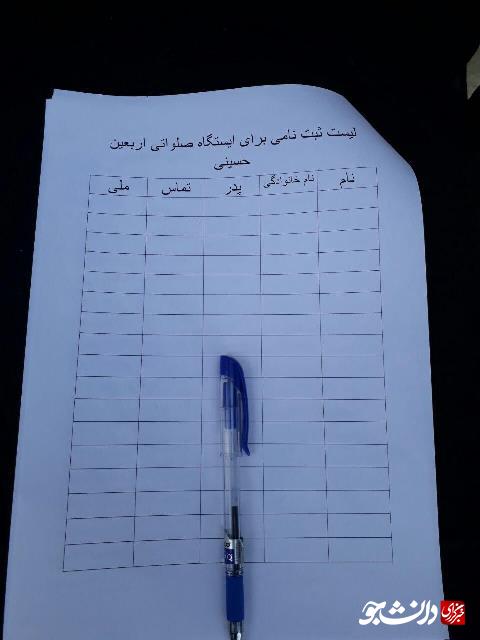 لیست ثبت نامی برای ایستگاه صلواتی اربعین
حسینی
نام نام خانوادگی پدر تماس ملی
خبرگزاری دانشجو